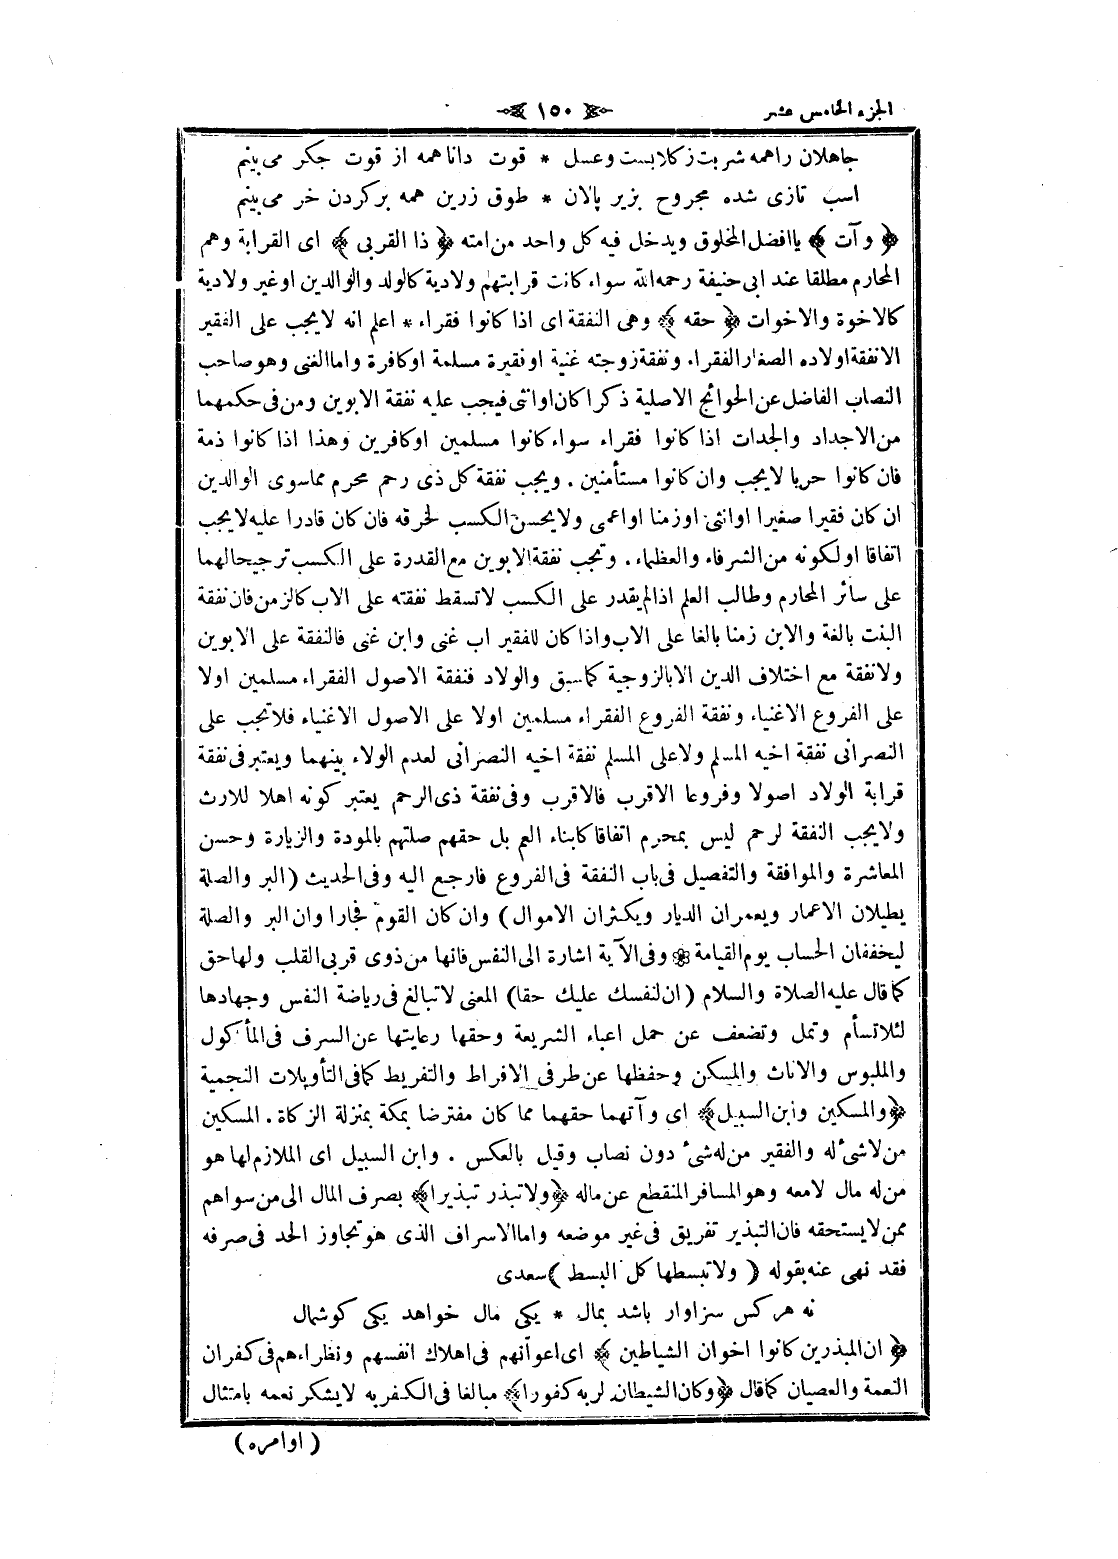 الجزء الخامس عشر
١٥٠
جاهلان را همه شربت ز كلابست وعسل * قوت دانا همه از قوت جكر مى بينم
اسب تازى شده مجروح بزير پالان * طوق زرين همه بر كردن خر مى بينم
﴿ وآت ﴾ يا افضل المخلوق ويدخل فيه كل واحد من امته ﴿ ذا القربى ﴾ اى القرابة وهم
المحارم مطلقا عند ابى حنيفة رحمه الله سواء كانت قرابتهم ولادية كالولد والوالدين او غير ولادية
كالاخوة والاخوات ﴿ حقه ﴾ وهى النفقة اى اذا كانوا فقراء * اعلم انه لا يجب على الفقير
الا نفقة اولاده الصغار الفقراء ونفقة زوجته غنية او فقيرة مسلمة او كافرة واما الغنى وهو صاحب
النصاب الفاضل عن الحوائج الاصلية ذكرا كان او انثى فيجب عليه نفقة الابوين ومن فى حكمهما
من الاجداد والجدات اذا كانوا فقراء سواء كانوا مسلمين او كافرين وهذا اذا كانوا ذمة
فان كانوا حربا لا يجب وان كانوا مستأمنين . ويجب نفقة كل ذى رحم محرم مما سوى الوالدين
ان كان فقيرا صغيرا او انثى او زمنا او اعمى ولا يحسن الكسب لخرقه فان كان قادرا عليه لا يجب
اتفاقا او لكونه من الشرفاء والعظماء . وتجب نفقة الابوين مع القدرة على الكسب ترجيحا لهما
على سائر المحارم وطالب العلم اذا لم يقدر على الكسب لا تسقط نفقته على الاب كالزمن فان نفقة
البنت بالغة والابن زمنا بالغا على الاب واذا كان للفقير اب غنى وابن غنى فالنفقة على الابوين
ولا نفقة مع اختلاف الدين الا بالزوجية كما سبق والولاد فنفقة الاصول الفقراء مسلمين اولا
على الفروع الاغنياء ونفقة الفروع الفقراء مسلمين اولا على الاصول الاغنياء فلا تجب على
النصرانى نفقة اخيه المسلم ولا على المسلم نفقة اخيه النصرانى لعدم الولاء بينهما ويعتبر فى نفقة
قرابة الولاد اصولا وفروعا الاقرب فالاقرب وفى نفقة ذى الرحم يعتبر كونه اهلا للارث
ولا يجب النفقة لرحم ليس بمحرم اتفاقا كابناء العم بل حقهم صلتهم بالمودة والزيارة وحسن
المعاشرة والموافقة والتفصيل فى باب النفقة فى الفروع فارجع اليه وفى الحديث (البر والصلة
يطيلان الاعمار ويعمران الديار ويكثران الاموال) وان كان القوم فجارا وان البر والصلة
ليخففان الحساب يوم القيامة ❁ وفى الآية اشارة الى النفس فانها من ذوى قربى القلب ولها حق
كما قال عليه الصلاة والسلام (ان لنفسك عليك حقا) المعنى لا تبالغ فى رياضة النفس وجهادها
لئلا تسأم وتمل وتضعف عن حمل اعباء الشريعة وحقها رعايتها عن السرف فى المأكول
والملبوس والاثاث والمسكن وحفظها عن طرفى الافراط والتفريط كما فى التأويلات النجمية
﴿ والمسكين وابن السبيل ﴾ اى وآتهما حقهما مما كان مفترضا بمكة بمنزلة الزكاة . المسكين
من لا شئ له والفقير من له شئ دون نصاب وقيل بالعكس . وابن السبيل اى الملازم لها هو
من له مال لا معه وهو المسافر المنقطع عن ماله ﴿ ولا تبذر تبذيرا ﴾ بصرف المال الى من سواهم
ممن لا يستحقه فان التبذير تفريق فى غير موضعه واما الاسراف الذى هو تجاوز الحد فى صرفه
فقد نهى عنه بقوله ( ولا تبسطها كل البسط ) سعدى
نه هر كس سزاوار باشد بمال * يكى مال خواهد يكى كوشمال
﴿ ان المبذرين كانوا اخوان الشياطين ﴾ اى اعوانهم فى اهلاك انفسهم ونظراءهم فى كفران
النعمة والعصيان كما قال ﴿ وكان الشيطان لربه كفورا ﴾ مبالغا فى الكفر به لا يشكر نعمه بامتثال
( اوامره )